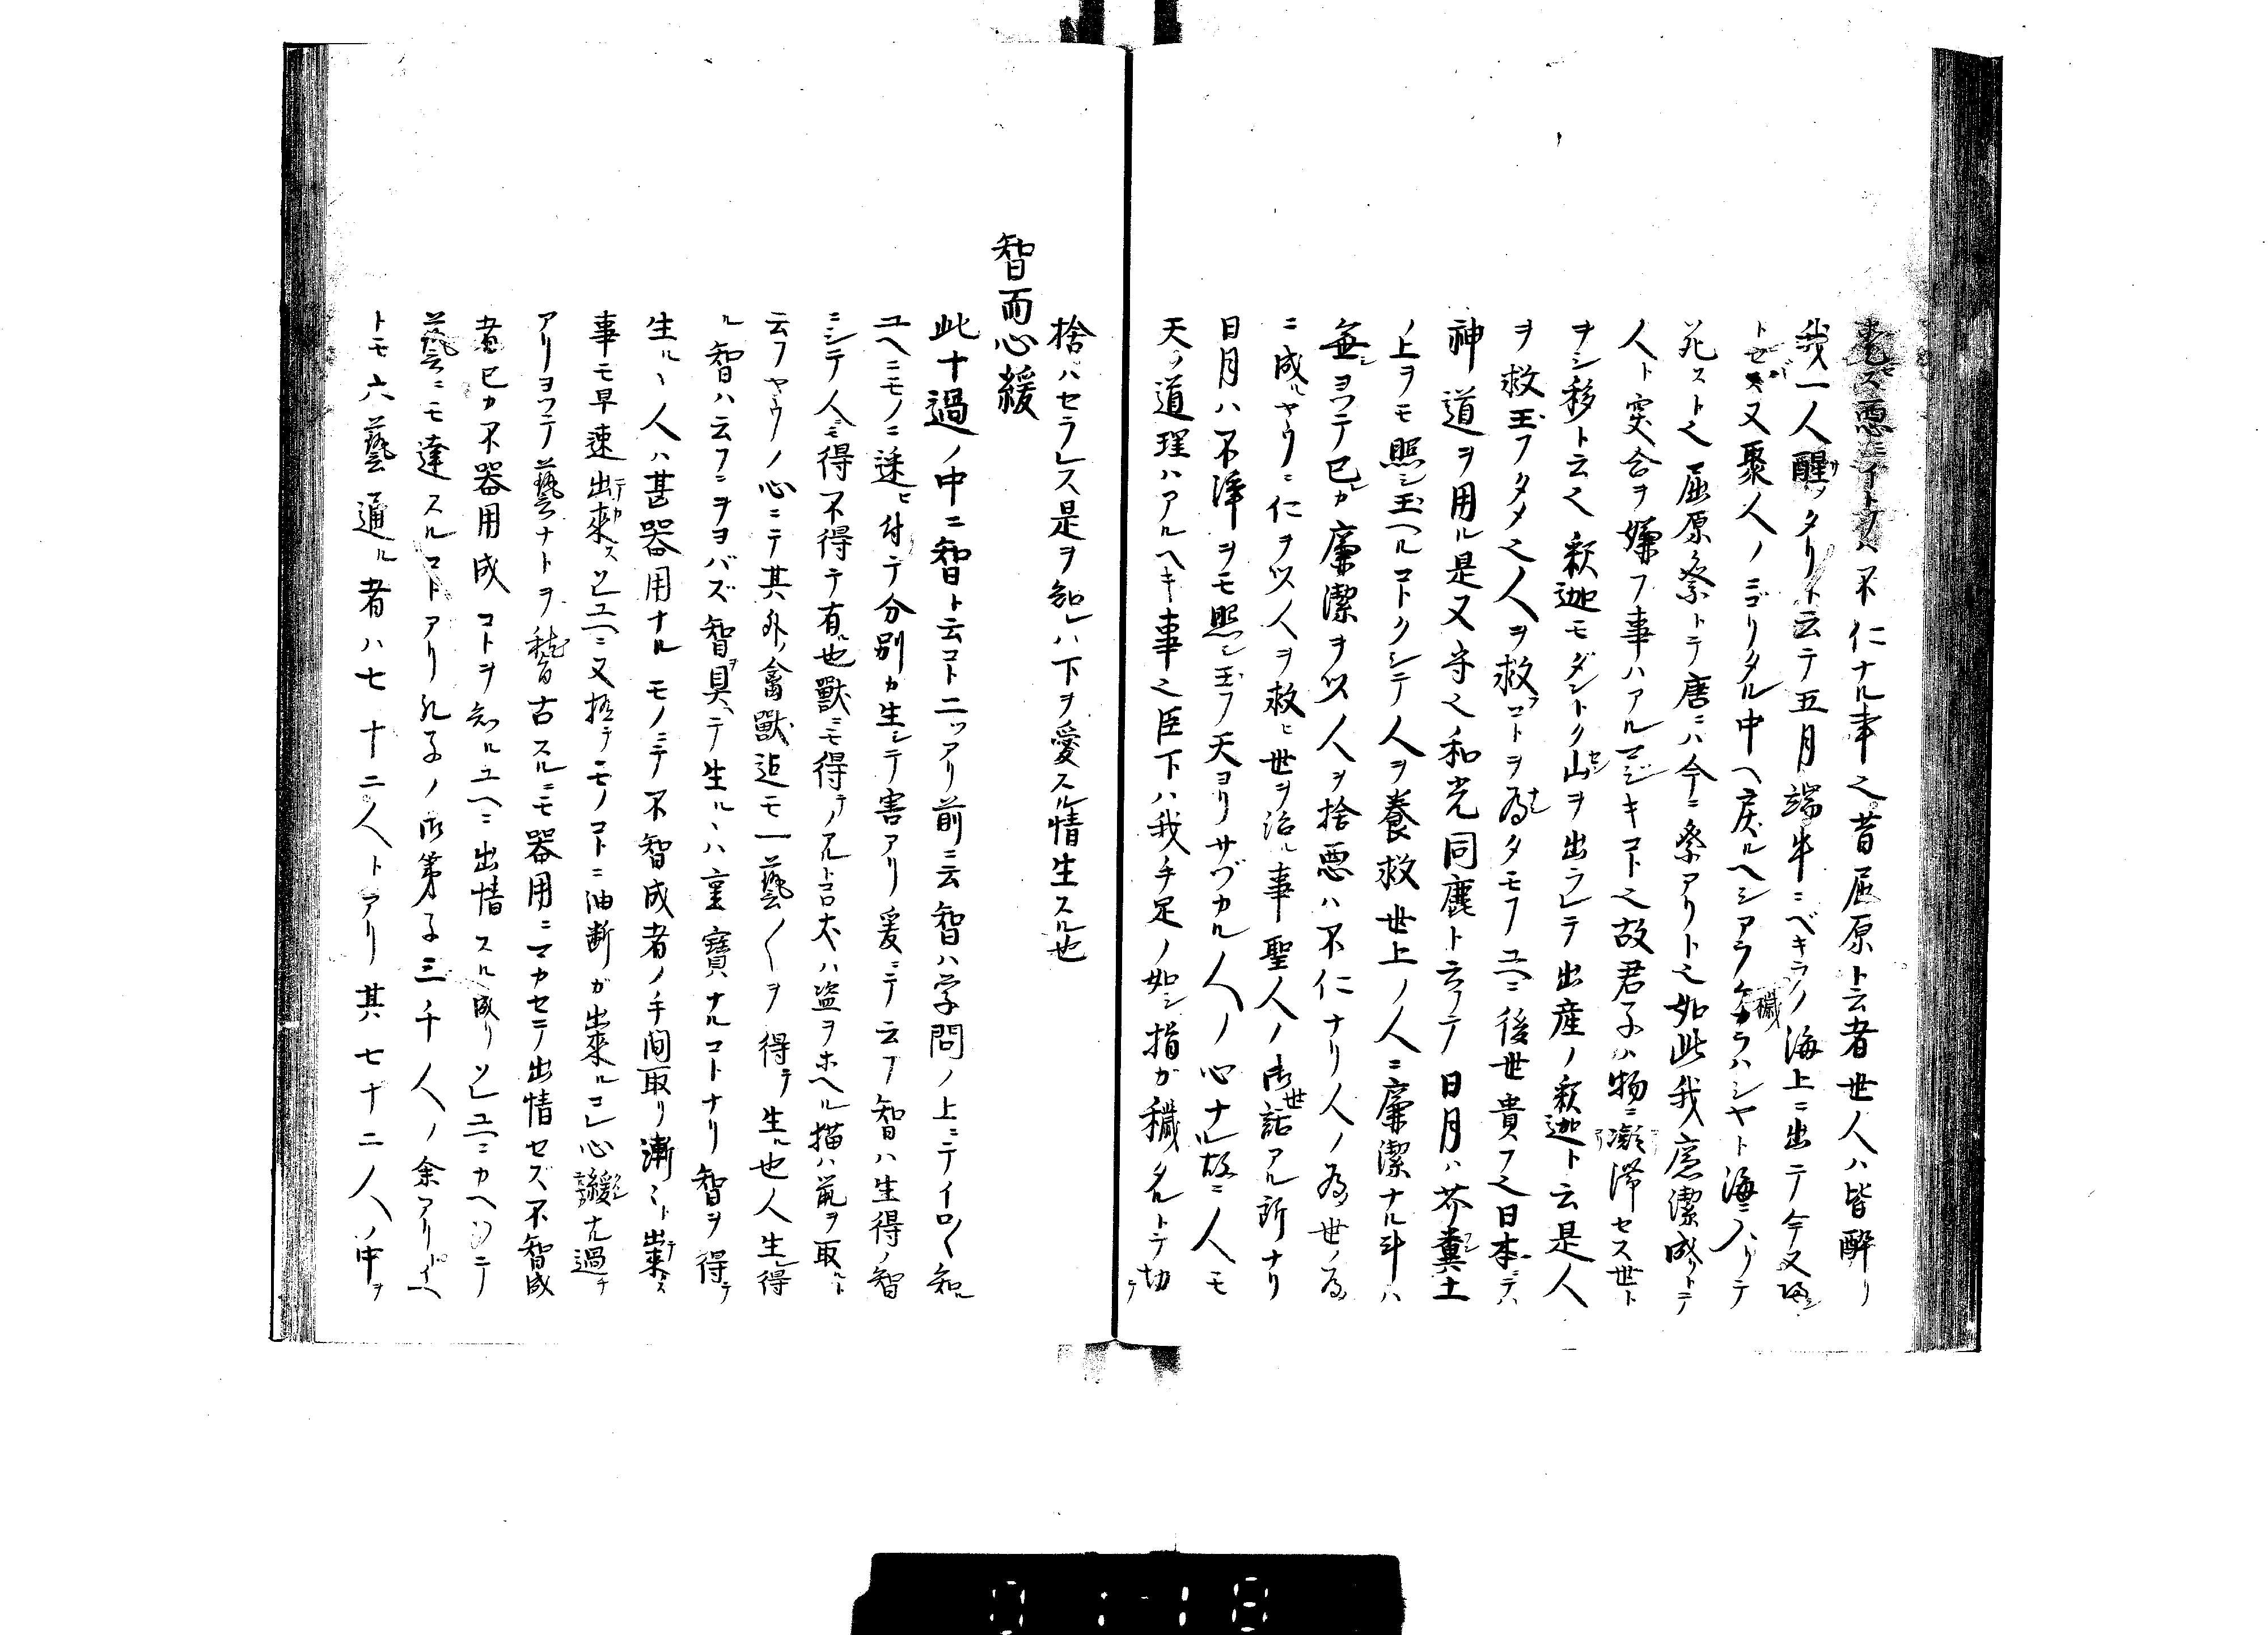 悪ニイトクハ不仁ナル事之昔屈原ト云者世人ハ皆酔リ
我一人醒タリト云テ五月端午ニベキラノ海上ニ出テ今又帰
トセバ又衆人ノニゴリタル中ヘ戻ルヘシアラケカラハシヤト海ニ入リテ
死スト之屈原祭トテ唐ニハ今ニ祭アリト之如此我廉潔成トテ
人ト突合ヲ嫌フ事ハアルマジキコト之故君子ハ物ニ凝滞セス世ト
ヲシ移ト云之釈迦モダントク山ヲ出ラレテ出産ノ釈迦ト云是人
ヲ救玉フタメ之人ヲ救フコトヲ為タモフユヘニ後世貴フ之日本ニテハ
神道ヲ用ル是又守之和光同塵ト云テ日月ハ芥糞土
ノ上ヲモ照シ玉ヘルコトクシテ人ヲ養救世上ノ人ニ廉潔ナル斗ハ
無シヨツテ己レカ廉潔ヲ以人ヲ捨悪ハ不仁ナリ人ノ為世ノ為
ニ成ルヤウニ仁ヲ以人ヲ救ヒ世ヲ治ル事聖人ノ御世話アル所ナリ
日月ハ不浄ヲモ照シ玉フ天ヨリサヅカル人ノ心ナレ故ニ人モ
天ノ道理ハアルヘキ事之臣下ハ我手足ノ如シ指ガ穢タルトテ切テ
捨ハセラレス是ヲ知レハ下ヲ愛スル情生スル也
智而心緩
此十過ノ中ニ智ト云コト二ツアリ前ニ云智ハ学問ノ上ニテイロ〱知ル
ユヘニモノニ迷ヒ付テ分別カ生シテ害アリ爰ニテ云フ智ハ生得ノ智
ニシテ人ニ得不得テ有ル也獣ニモ得テノアルト云犬ハ盗ヲホヘル猫ハ鼠ヲ取ルト
云フヤウノ心ニテ其外禽獣迄モ一藝ノ〱ヲ得テ生ル也人生レ得
ル智ハ云フニヲヨバズ智ヲ具ヘテ生ルヽハ重寶ナルコトナリ智ヲ得テ
生ルヽ人ハ甚器用ナルモノニテ不智成者ノ手間取リ漸々ト出来ス
事モ早速出来スソレユヘニ又捨テモノコトニ油断ガ出来ルコレ心緩ナル過チ
アリヨツテ藝ナトヲ稽古スルニモ器用ニマカセテ出情セズ不智成
者己カ不器用成コトヲ知ルユヘニ出情スル成リソレユヘニカヘツテ
藝ニモ達スルコトアリ孔子ノ御弟子三千人ノ余アリトイヘ
トモ六藝通ル者ハ七十二人トアリ其七十二人ノ中ヲ